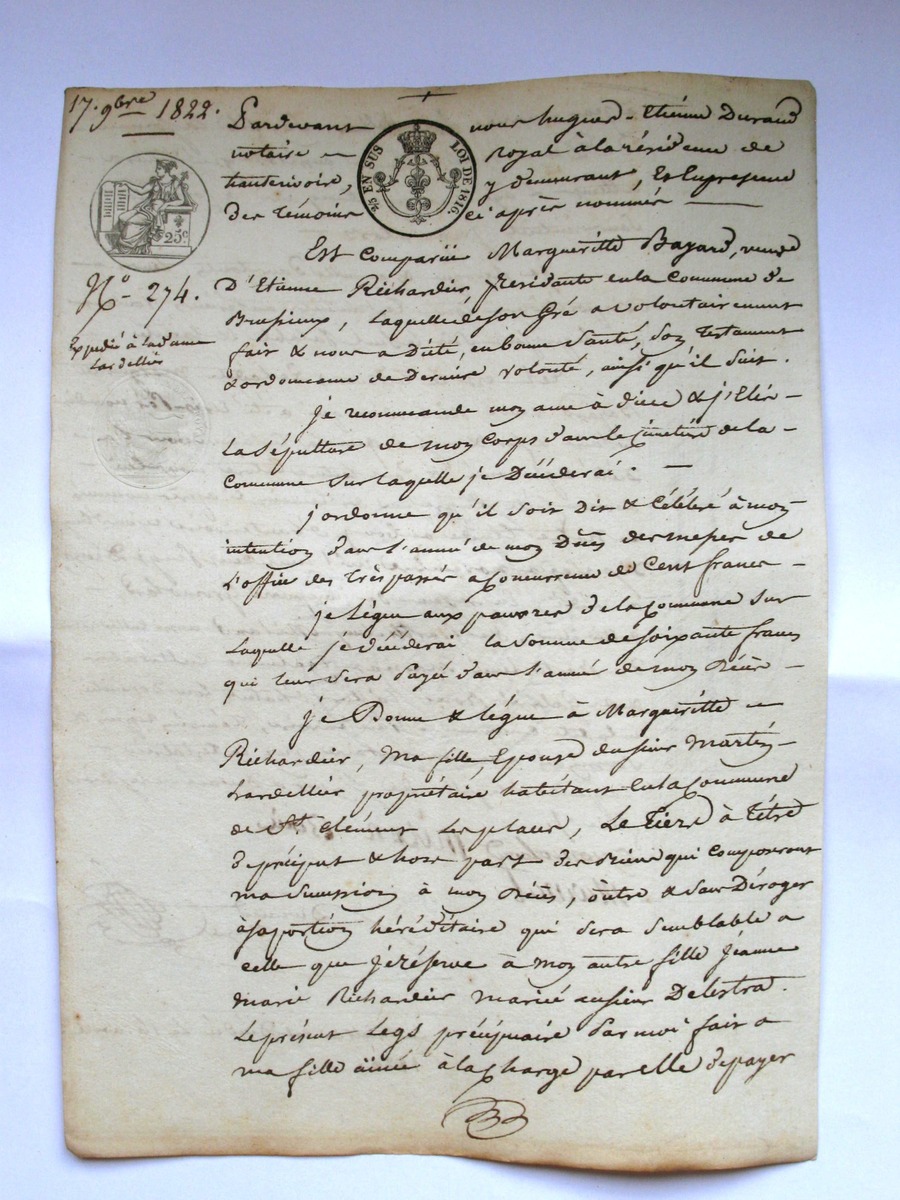 17. 9bre 1822.
Pardevant nous hugues-Etienne Durand
notaire royal à la résidence de
hauterivoire, y demeurant, Et Enpresence
des témoins ci après nommés
25 EN SUS LOI DE 1816.
25c.
Est Comparüe Margueritte Bazard, veuve
N° 274.
D'Etienne Richardier, résidante en la Commune de
Brussieux, laquelle de son Gré a volontairement
Expédié à la dame
Lardellier
fait & nous a dicté, en bonne Santé, Son Testament
& ordonnance de derniere volonté, ainsi qu'il Suit.
Je recommande mon ame à dieu & j'Elis
La Sépulture de mon Corps dans le Cimetière de la
Commune Sur laquelle je Décèderai.
j'ordonne qu'il soit Dit & Célébré à mon
intention dans l'année de mon Décès des messes de
L'office des Trépassés a Concurrence de Cent francs
je Lègue aux pauvres de la Commune Sur
Laquelle je décèderai la Somme de Soixante francs
qui leur Sera payée dans l'année de mon Décès
je Donne & Lègue à Margueritte
Richardier, Ma fille, Epouse du sieur Martin
Lardellier propriétaire habitant En la Commune
de St. Clément Les places, Le Tiers à Titre
de préciput & hors part des Biens qui Composeront
ma Succession à mon Décès, outre & Sans Déroger
à sa portion héréditaire qui Sera Semblable a
celle que je réserve à mon autre fille Jeanne
Marie Richardier mariée au sieur Delestra.
Le présent Legs précipuaire Par moi fait a
ma fille ainée à la Charge par elle de payer